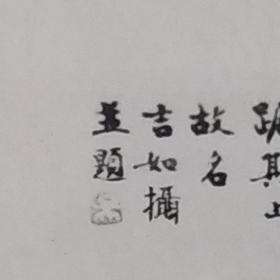 其上
故名
吉如攝
並題